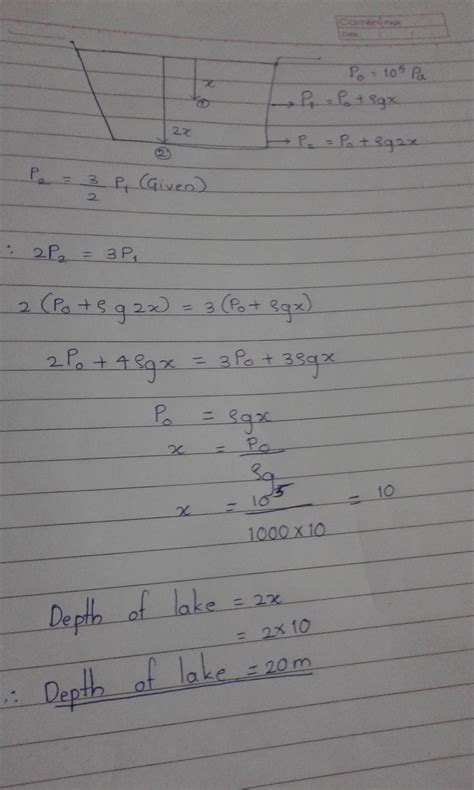 Date
P₀ = 10⁵ Pa
x
①
→ P₁ = P₀ + ρgx
2x
②
→ P₂ = P₀ + ρg2x
P₂ = 3/2 P₁ (Given)
∴ 2P₂ = 3P₁
2 (P₀ + ρg2x) = 3 (P₀ + ρgx)
2P₀ + 4ρgx = 3P₀ + 3ρgx
P₀ = ρgx
x = P₀/ρg
x = 10⁵/1000×10 = 10
Depth of lake = 2x
= 2×10
∴ Depth of lake = 20m